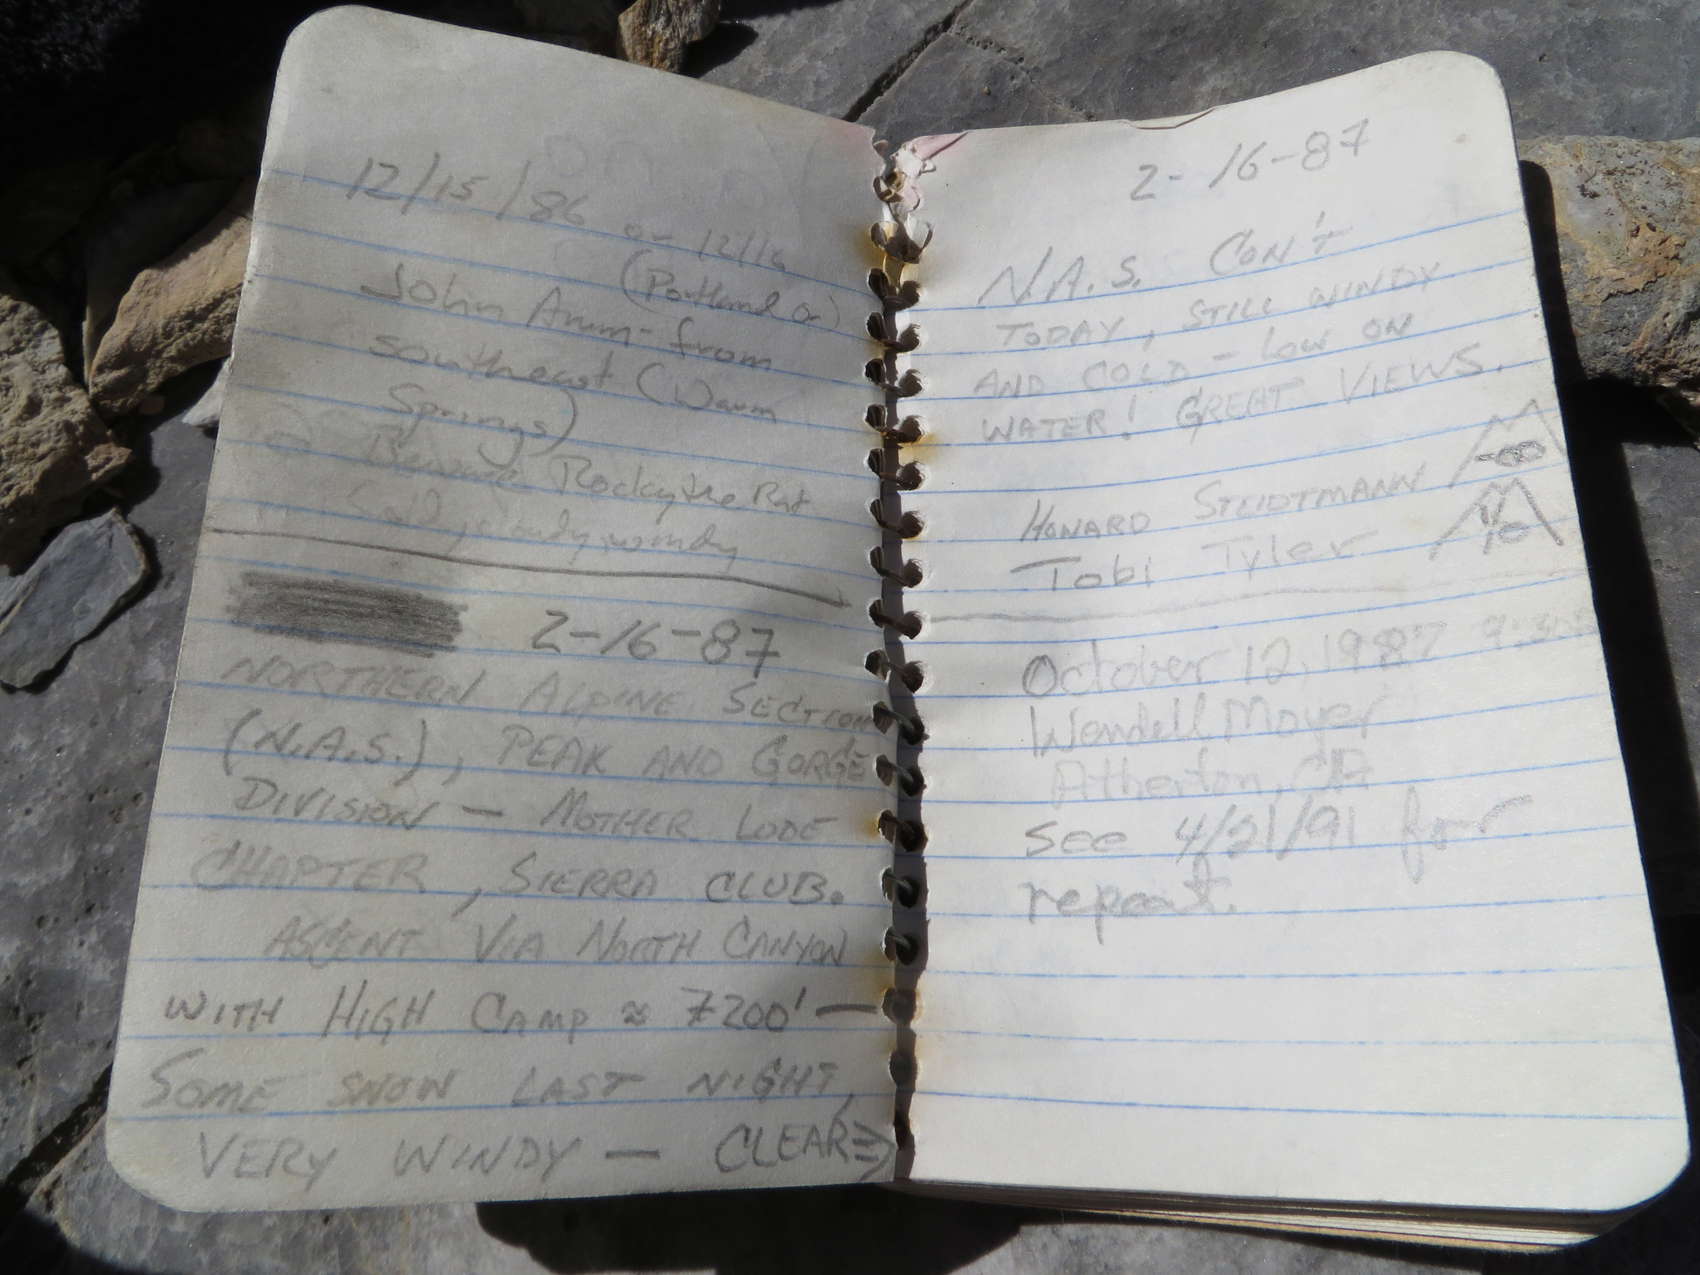 12/15/86 or 12/16
(Portland Or)
John Amm- from
southeast (Warm
Springs)
Rocky the Rat
windy
2-16-87
NORTHERN ALPINE SECTION
(N.A.S.), PEAK AND GORGE
DIVISION — MOTHER LODE
CHAPTER, SIERRA CLUB.
ASCENT VIA NORTH CANYON
WITH HIGH CAMP ≈ 7200' —
SOME SNOW LAST NIGHT,
VERY WINDY — CLEAR
2-16-87
N.A.S. CON'T
TODAY, STILL WINDY
AND COLD — LOW ON
WATER! GREAT VIEWS.
HOWARD STEIDTMANN
Tobi Tyler
October 12, 1987
Wendell Moyer
Atherton, CA
see 4/21/91 for
repeat.